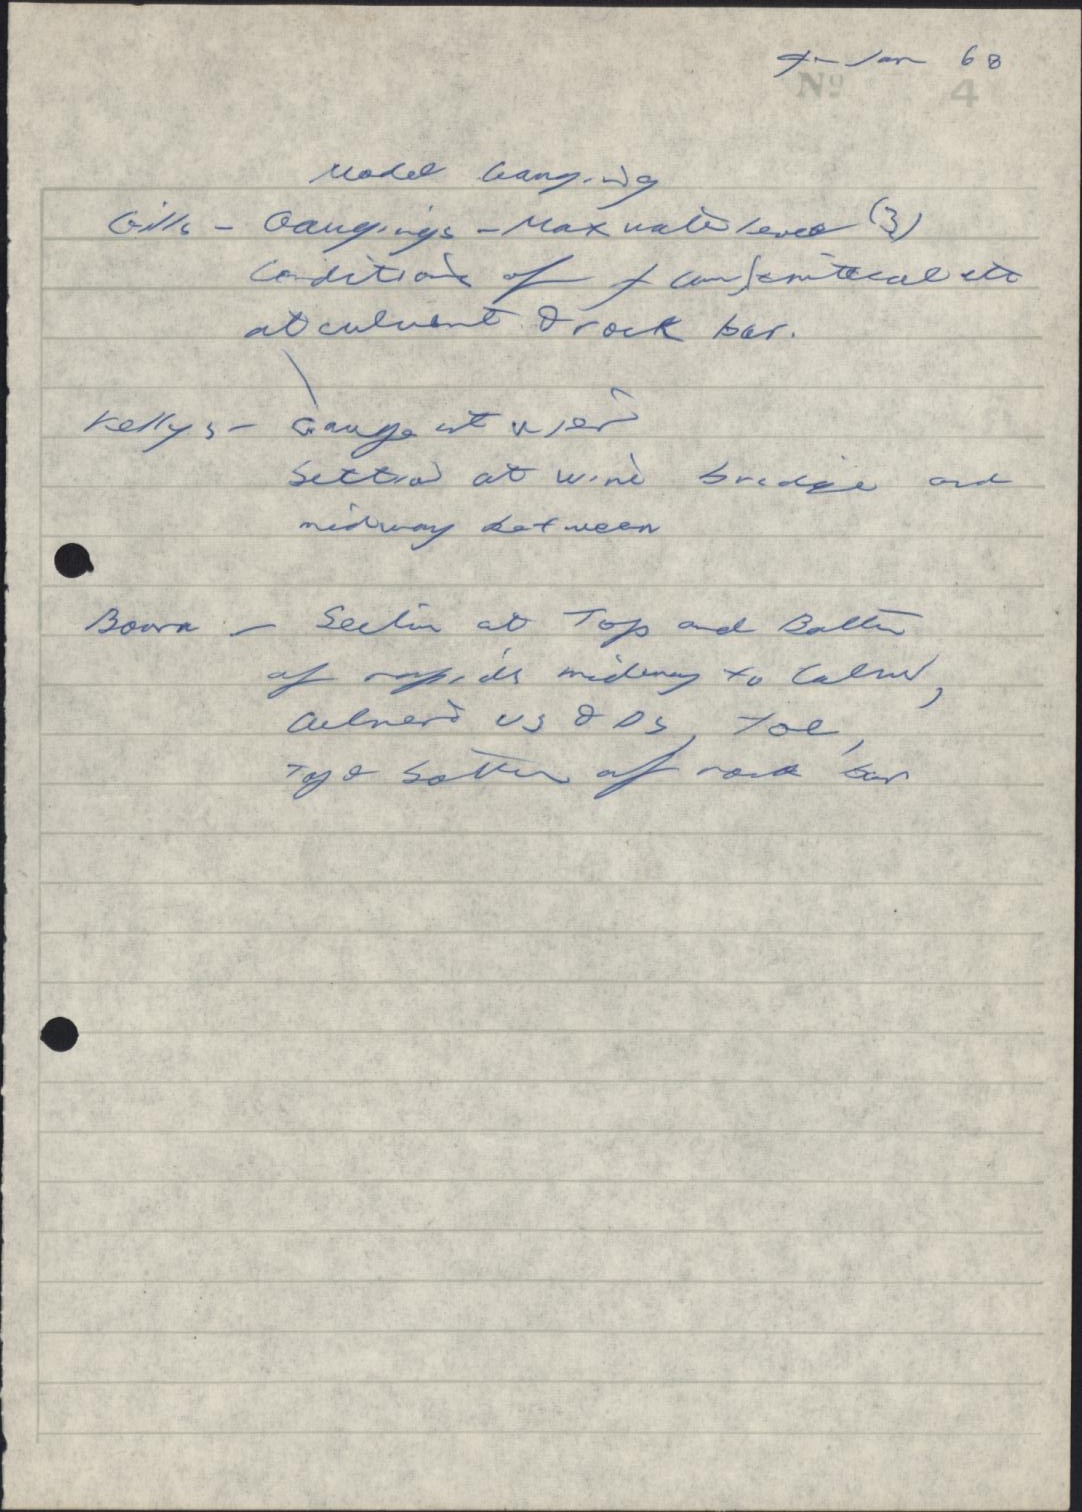 Jan 68
No 4
Model Gauging
Gills - Gaugings - Max water level (3)
Conditions of etc
at culvert & rock bar.
Kellys - Gauge at weir
Section at wire bridge and
midway between
Bowra - Section at Top and Bottom
of rapids midway to Culvert,
Culvert US & DS, Toe,
Top & bottom of rock bar